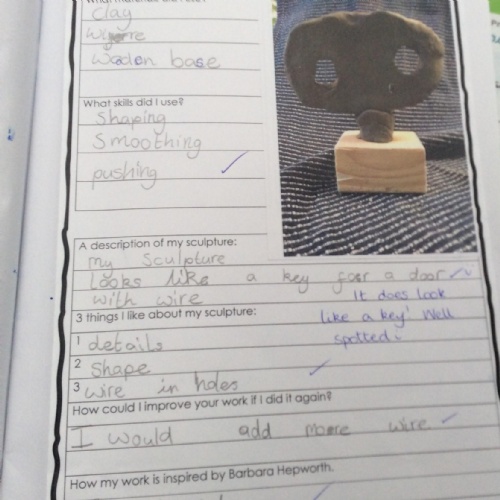 clay
wire
wooden base
What skills did I use?
Shaping
Smoothing
pushing
A description of my sculpture:
my Sculpture
Looks like a key for a door
with wire
It does look
like a key! Well
spotted!
3 things I like about my sculpture:
1 details
2 Shape
3 wire in holes
How could I improve your work if I did it again?
I would add more wire
How my work is inspired by Barbara Hepworth.